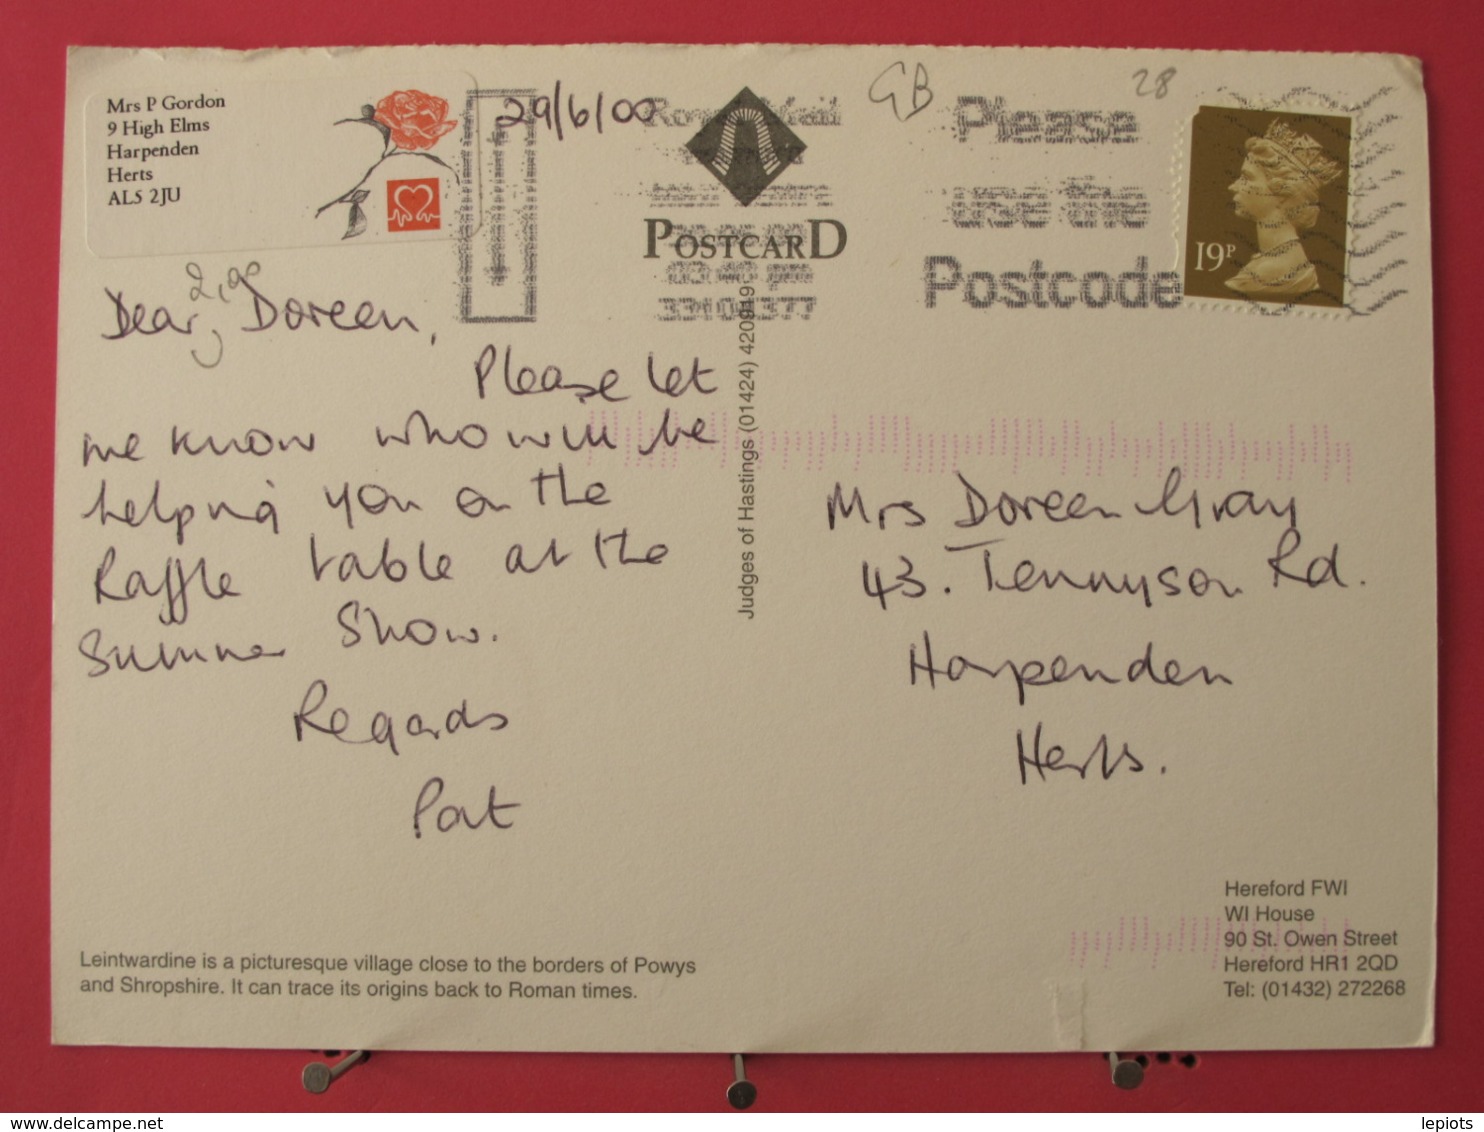 Mrs P Gordon
9 High Elms
Harpenden
Herts
AL5 2JU
29/6/00
Royal Mail
GB
28
Please
use the
Postcode
19P
POSTCARD
Dear Doreen,
Please let
me know who will be
helping you on the
Raffle table at the
Summer Show.
Regards
Pat
Judges of Hastings (01424) 420919
Mrs Doreen Gray
43. Tennyson Rd.
Harpenden
Herts.
Leintwardine is a picturesque village close to the borders of Powys
and Shropshire. It can trace its origins back to Roman times.
Hereford FWI
WI House
90 St. Owen Street
Hereford HR1 2QD
Tel: (01432) 272268
delcampe.net
lepiots